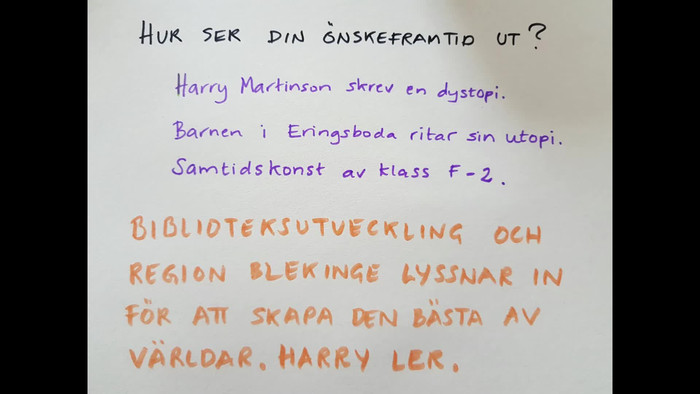 HUR SER DIN ÖNSKEFRAMTID UT?
Harry Martinson skrev en dystopi.
Barnen i Eringsboda ritar sin utopi.
Samtidskonst av klass F-2.
BIBLIOTEKSUTVECKLING OCH
REGION BLEKINGE LYSSNAR IN
FÖR ATT SKAPA DEN BÄSTA AV
VÄRLDAR. HARRY LER.